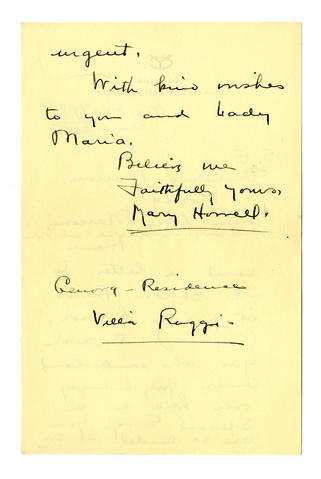 urgent.
With kind wishes
to you and Lady
Maria.
Believe me
Faithfully yours,
Mary Howell.
Genova - Residence
Villa Ruggi